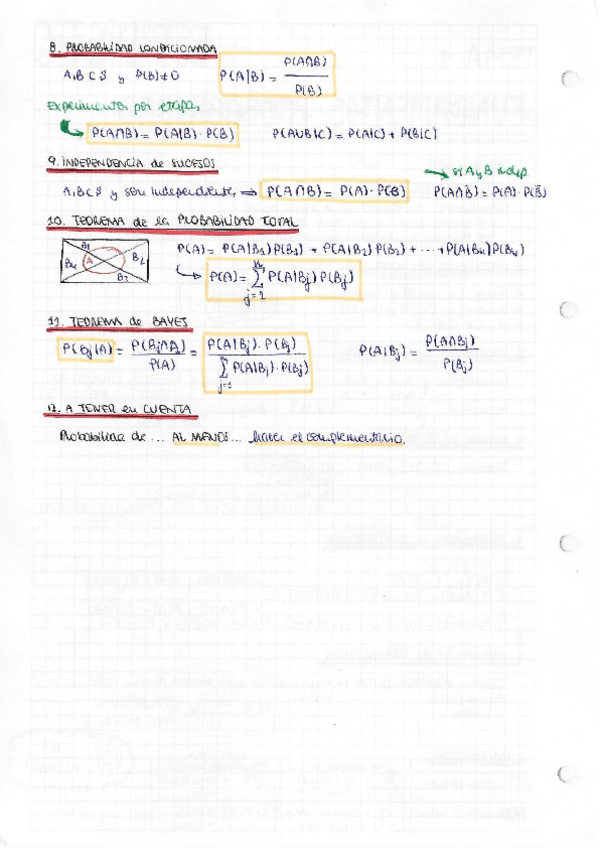 8. PROBABILIDAD CONDICIONADA
A,B ⊂ S y P(B)≠0 P(A|B) = P(A∩B) / P(B)
Experimentos por etapas
P(A∩B) = P(A|B) · P(B) P(A∪B|C) = P(A|C) + P(B|C)
9. INDEPENDENCIA de SUCESOS
si A y B indep.
A,B ⊂ S y son independientes ⇒ P(A∩B) = P(A) · P(B) P(A∩B̄) = P(A) · P(B̄)
10. TEOREMA de la PROBABILIDAD TOTAL
B1 B2 B3 B4 A
P(A) = P(A|B1)P(B1) + P(A|B2)P(B2) + ... + P(A|Bn)P(Bn)
P(A) = Σ P(A|Bj) P(Bj)
11. TEOREMA de BAYES
P(Bj|A) = P(Bj∩A) / P(A) = P(A|Bj) · P(Bj) / Σ P(A|Bj) · P(Bj) P(A|Bj) = P(A∩Bj) / P(Bj)
12. A TENER en CUENTA
Probabilidad de ... AL MENOS... hacer el complementario.